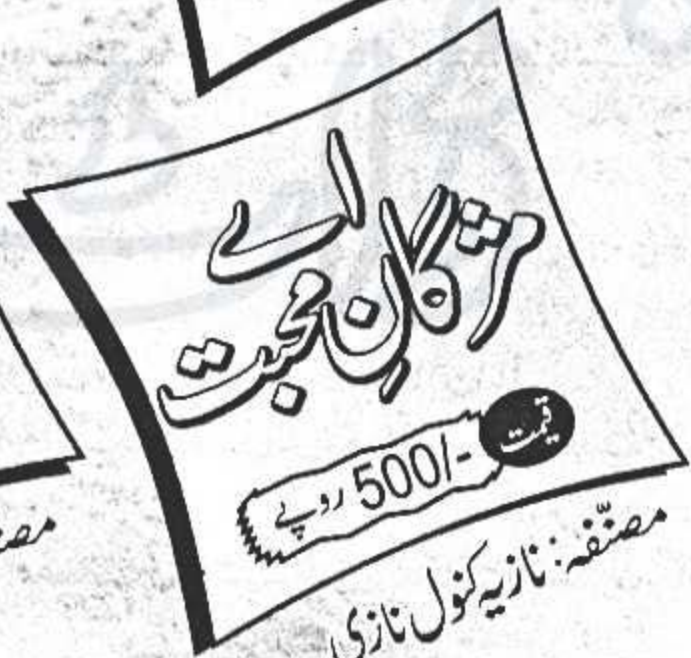 اے
مژگانِ محبت
قیمت
500/- روپے
مصنّفہ: نازیہ کنول نازی